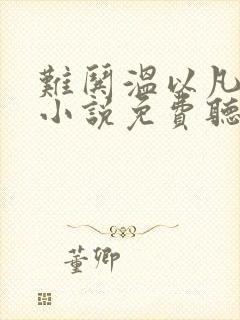 難鬨溫以凡
小說免費聽
董卿